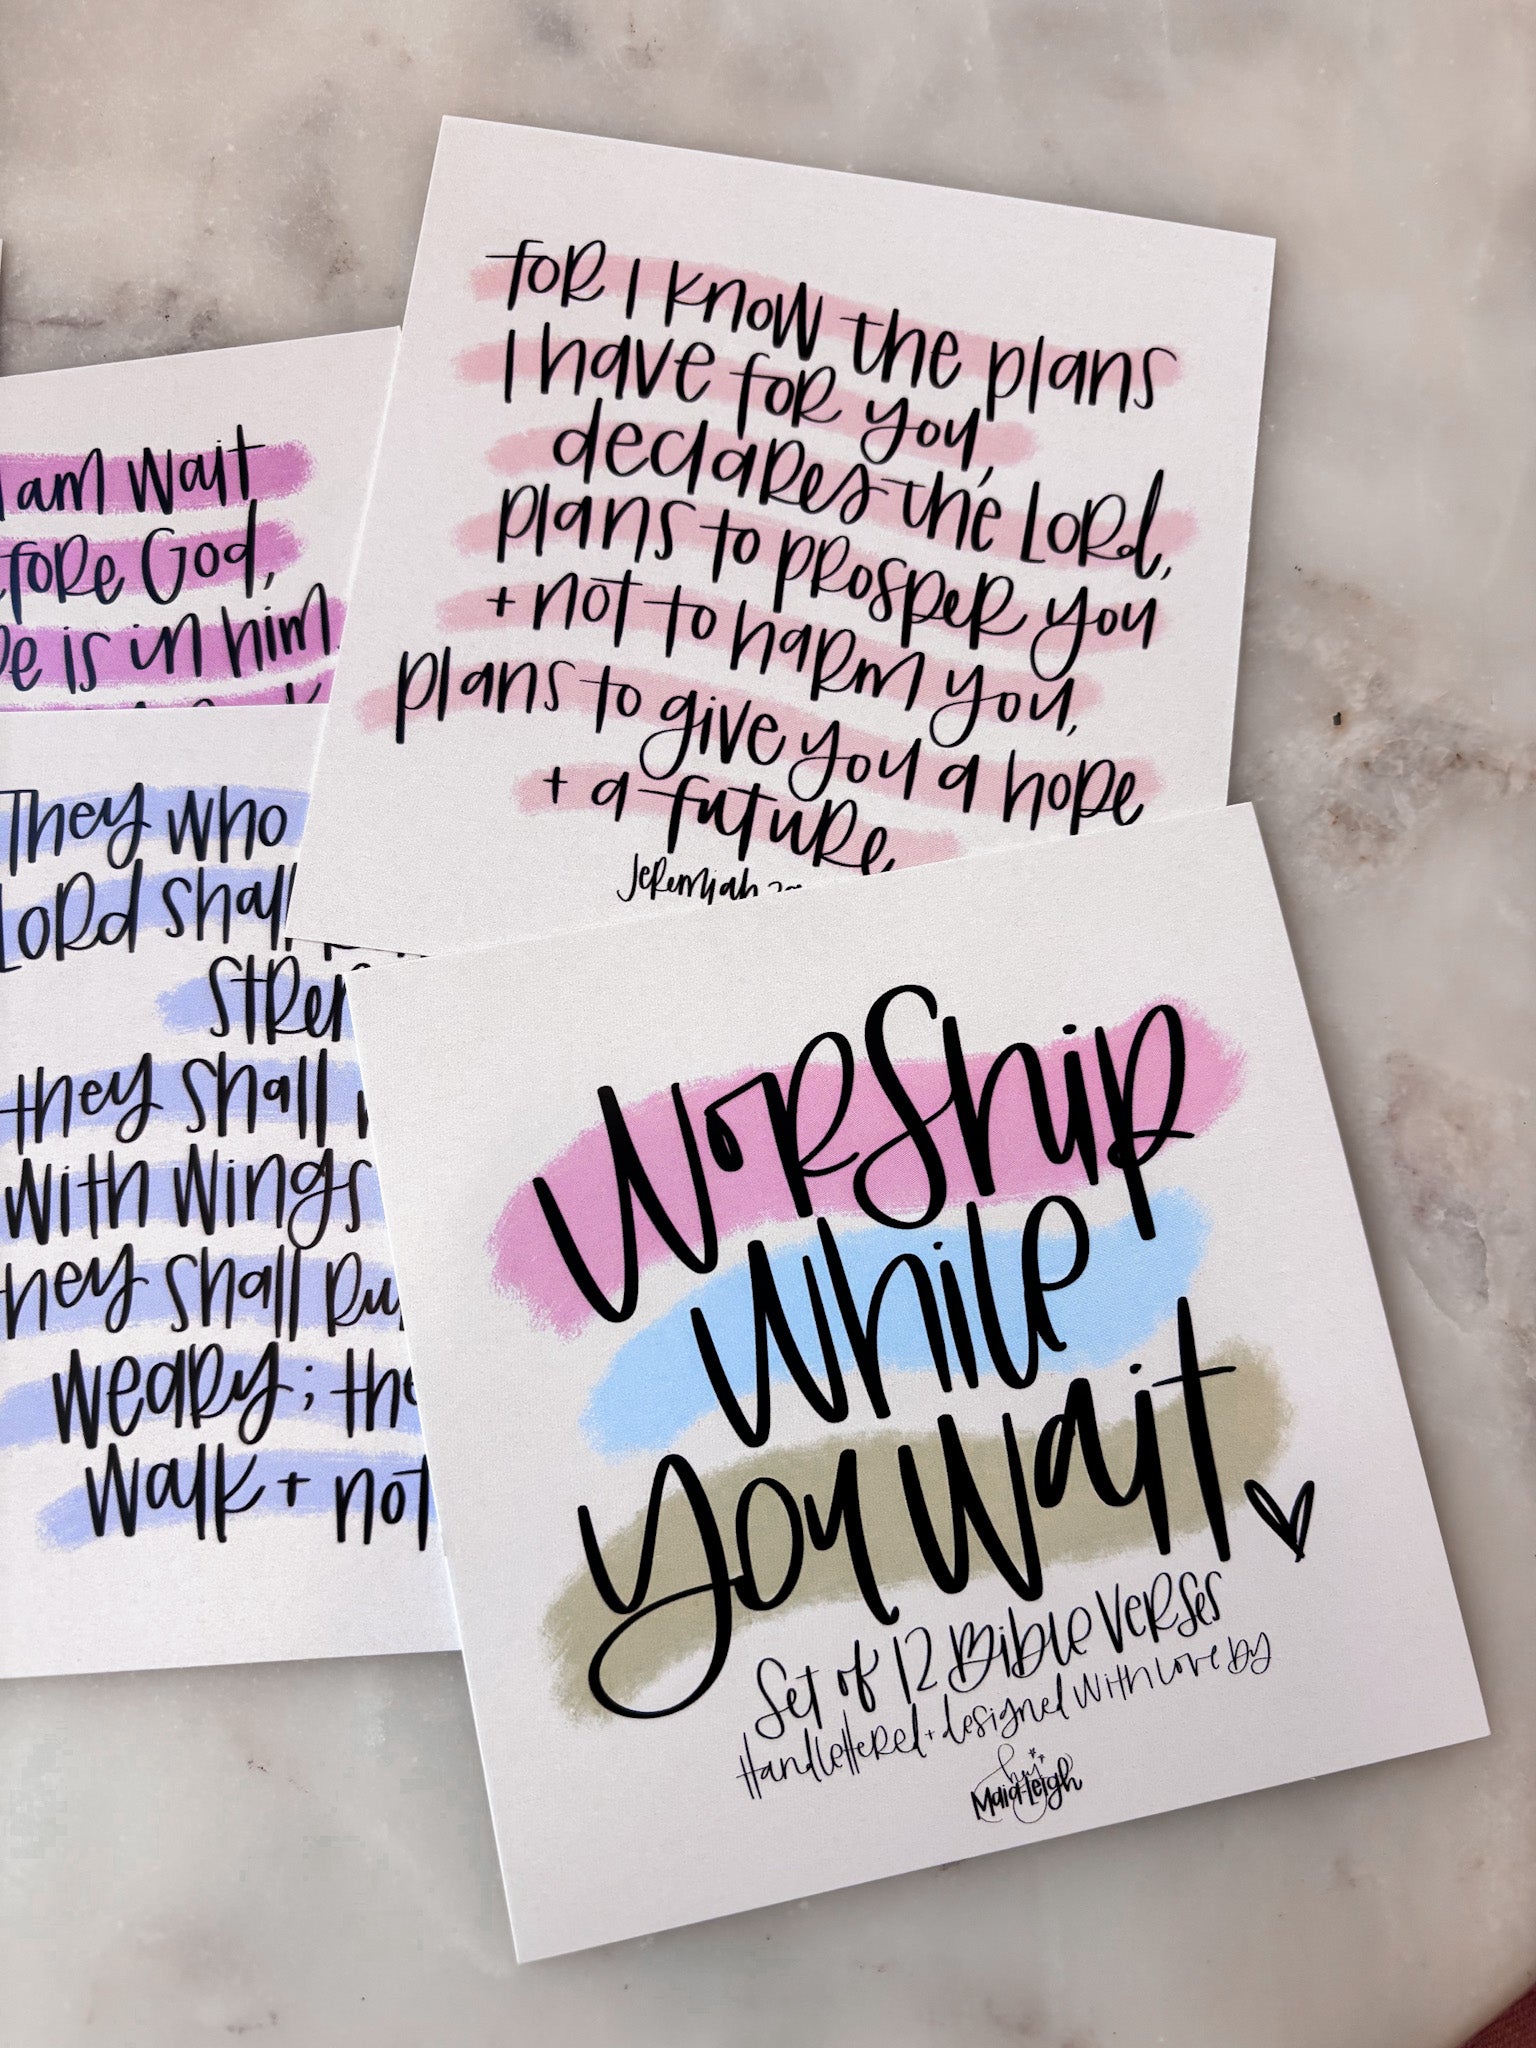 for I know the plans
I have for you,
declares the Lord,
plans to prosper you
+ not to harm you,
plans to give you a hope
+ a future.
Jeremiah
I am wait
God,
is in him.
They who
Lord shall
they shall
with wings
they shall
weary; the
walk + not
Worship
While
you Wait
Set of 12 Bible Verses
Handlettered + designed with love by
hey
Maia-Leigh